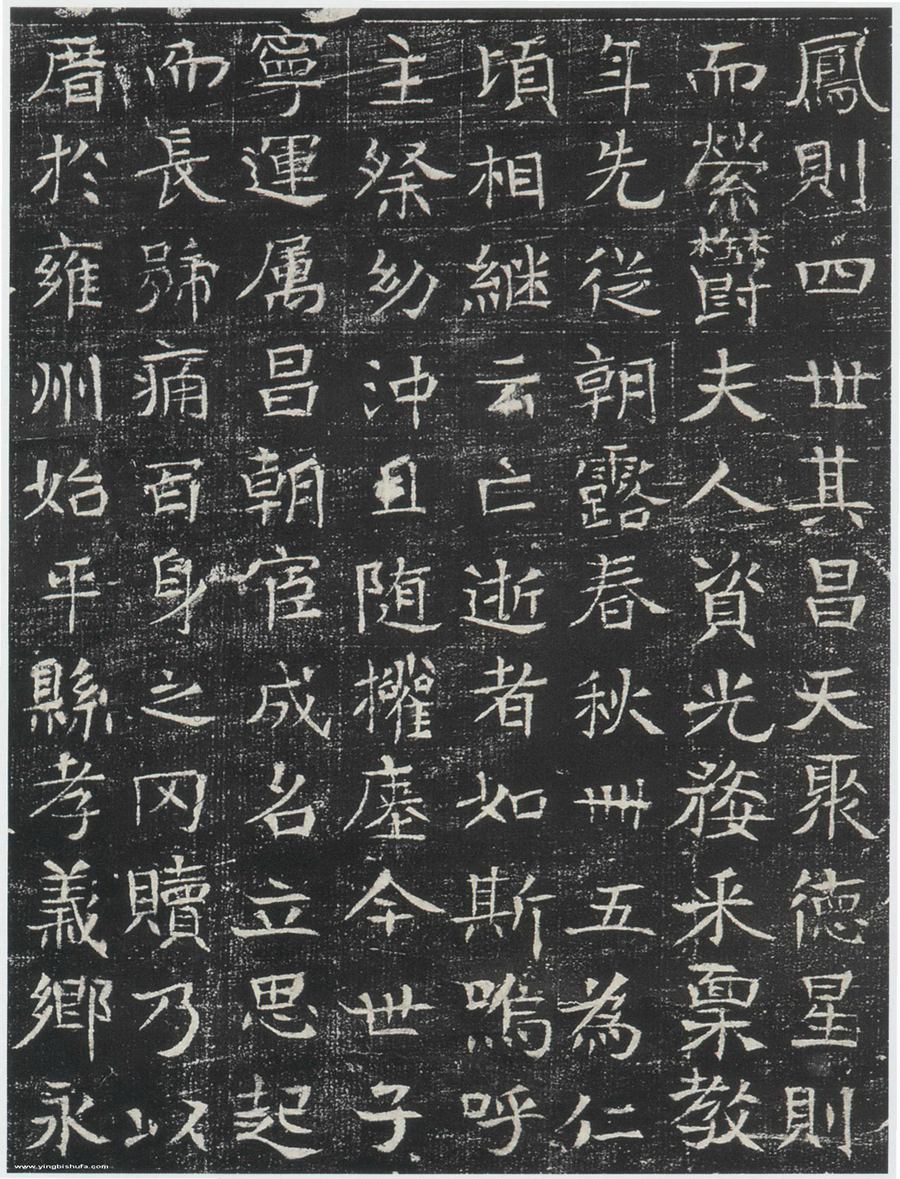 鳳則四世其昌天聚徳星則
而縈欝夫人資光婺采稟教
年先從朝露春秋卌五為仁
頃相継云亡逝者如斯嗚呼
主祭幼沖且随擢塵今世子
寧運属昌朝宦成名立思起
而長號痛百身之罔贖乃以
厝於雍州始平縣孝義鄉永
www.yingbishufa.com